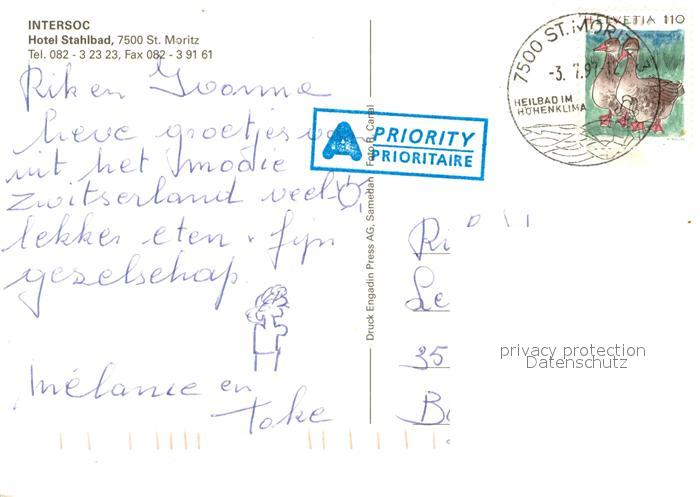 INTERSOC
Hotel Stahlbad, 7500 St. Moritz
Tel. 082 - 3 23 23, Fax 082 - 3 91 61
Rik en Ivonne
lieve groetjes van
uit het mooie
zwitserland veel
lekker eten + fijn
gezelschap
Mélanie en
Toke
Druck Engadin Press AG, Samedan Foto R. Canal
A PRIORITY
PRIORITAIRE
7500 ST. MORITZ
HEILBAD IM
HÖHENKLIMA
HELVETIA 110
Ri
Le
35
B
privacy protection
Datenschutz